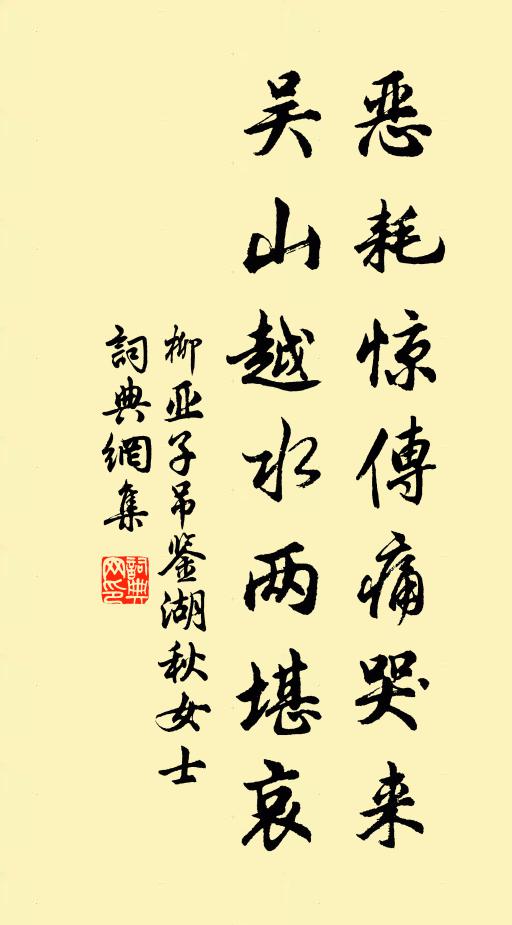 恶耗惊傳痛哭来
吴山越水两堪哀
柳亚子吊鉴湖秋女士
詞典網集
詞典网印